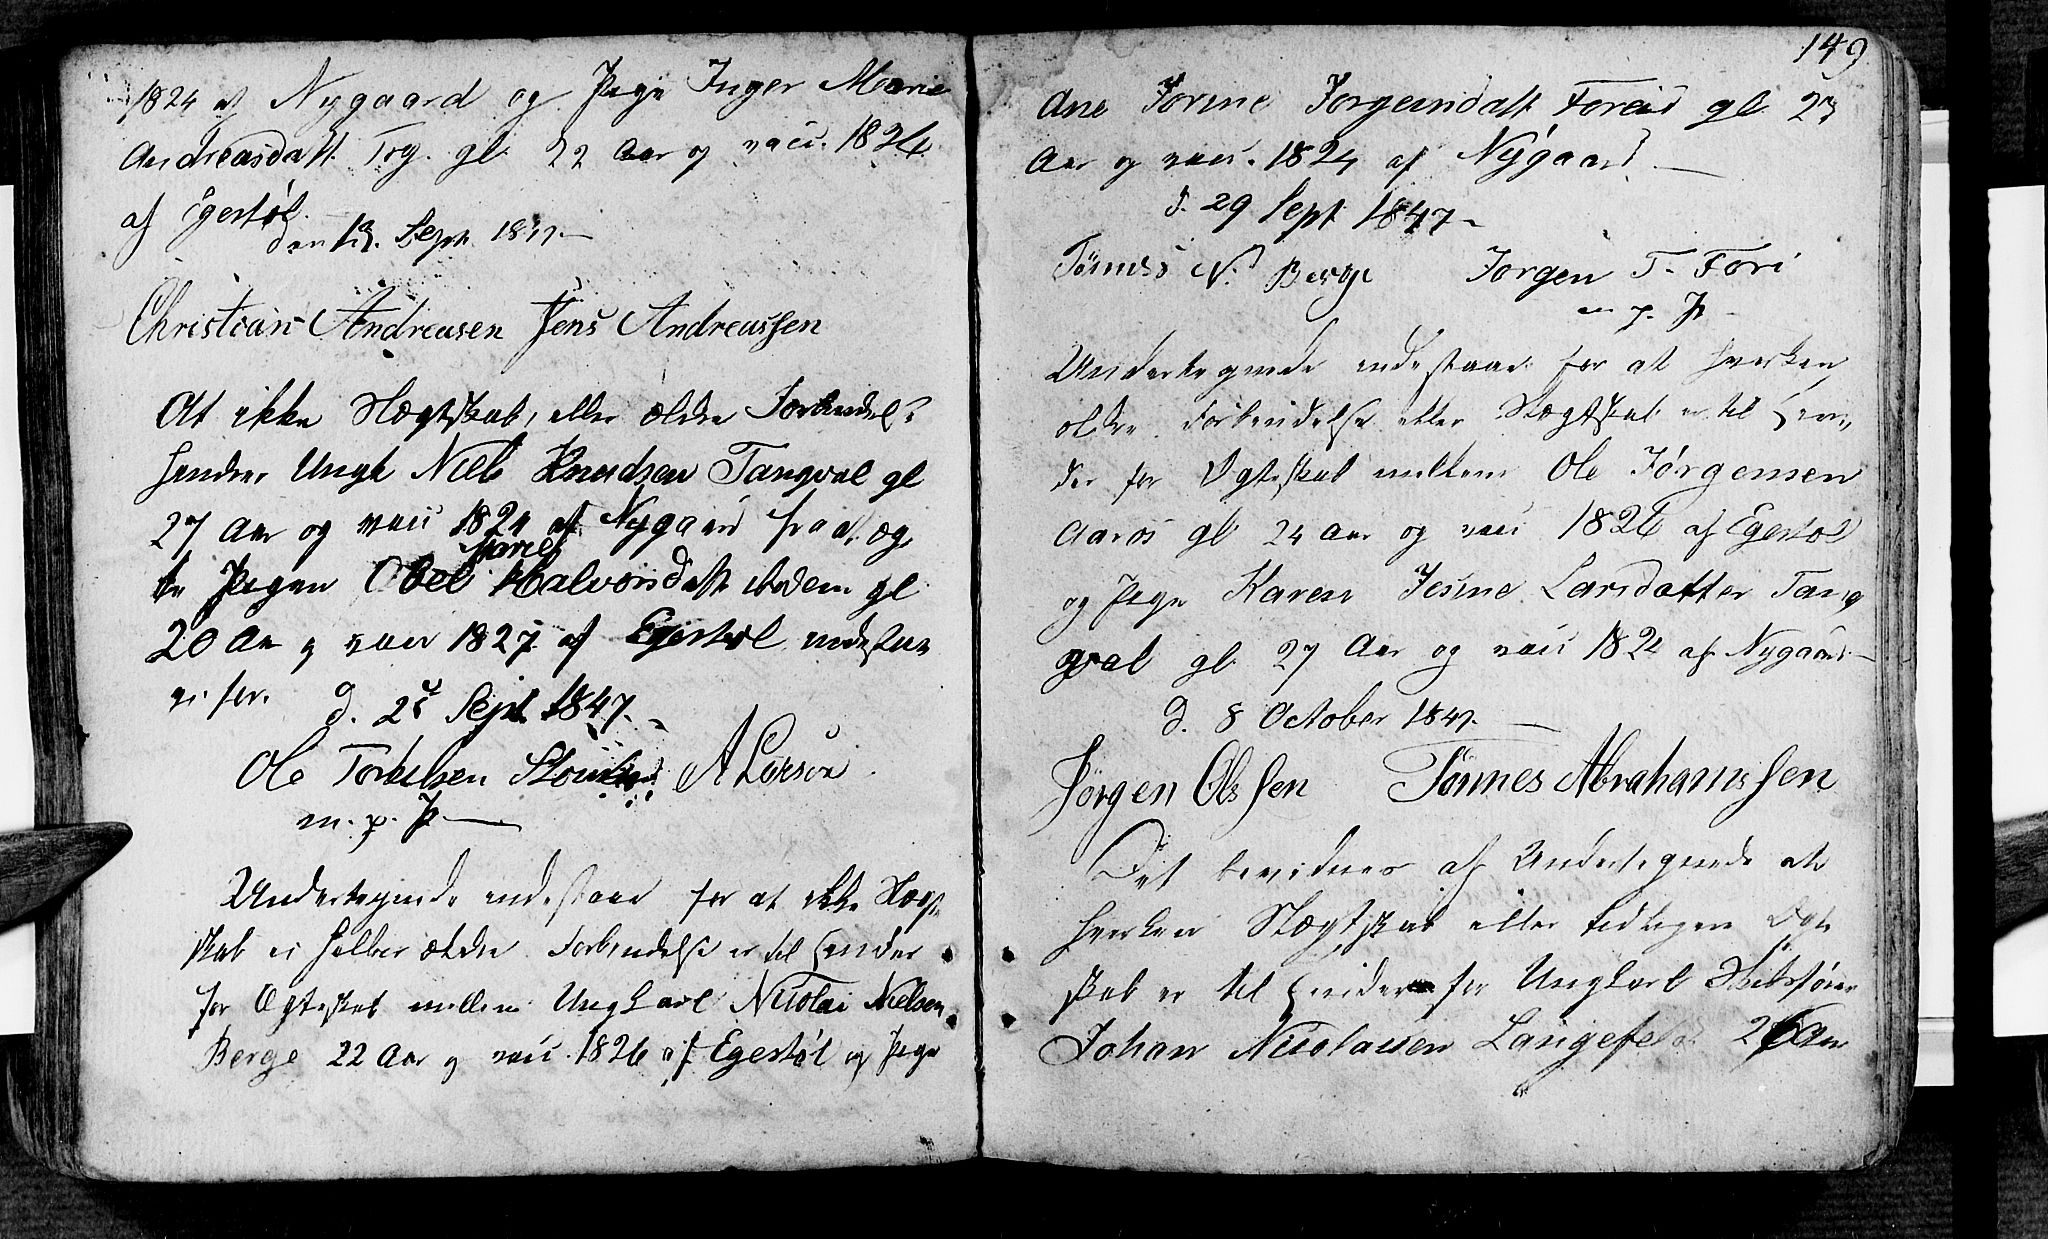 1824 af Nygaard og Pige Inger Marie
Andreasdatt. Trg. gl 22 Aar og vacc. 1826
af Egestøl.
den 12. Sept. 1847.
Christian Andreasen Jens Andreassen
At ikke Slægtskab, eller ældre Forbindelse
hindrer Ungk Niels Knudsen Tangval gl
27 Aar og vacc 1824 af Nygaard fra at æg-
Marie
te Pigen Abel Halvorsdatt ibidem gl
20 Aar og vacc 1827 af Egestøl indestaa
vi for.
d. 25 Sept 1847.
Ole Torkelsen A Larsen
m. p. P
Undertegnede indestaar for at ikke Slægt-
skab ei heller ældre Forbindelse er til Hinder
for Ægteskab mellem Ungkarl Nicolai Nielsen
Berge 22 Aar og vacc. 1826 af Egestøl og Pige
149
Ane Jorine Jorgensdatt Foreid gl 23
Aar og vacc. 1824 af Nygaard.
d. 29 Sept 1847
Tönnes N. Berge Jorgen T. Fori
m. p. P
Undertegnede indestaar for at hverken
ældre Forbindelse eller Slægtskab er til Hin-
der for Ægteskab mellem Ole Jörgensen
Aarøs gl 24 Aar og vacc 1826 af Egestøl
og Pige Karen Jesine Larsdatter Tang
gval gl 27 Aar og vacc 1824 af Nygaard
d. 8 October 1847.
Jörgen Olssen Tönnes Abrahamssen
Det bevidnes af Undertegnede at
hverken Slægtskab eller tidligere Ægte
skab er til Hinder for Ungkarl Skibsfører
Johan Nicolaisen Langefeldt 26 Aar